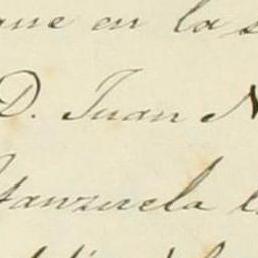 que en la s
D. Juan N
tanzuela l